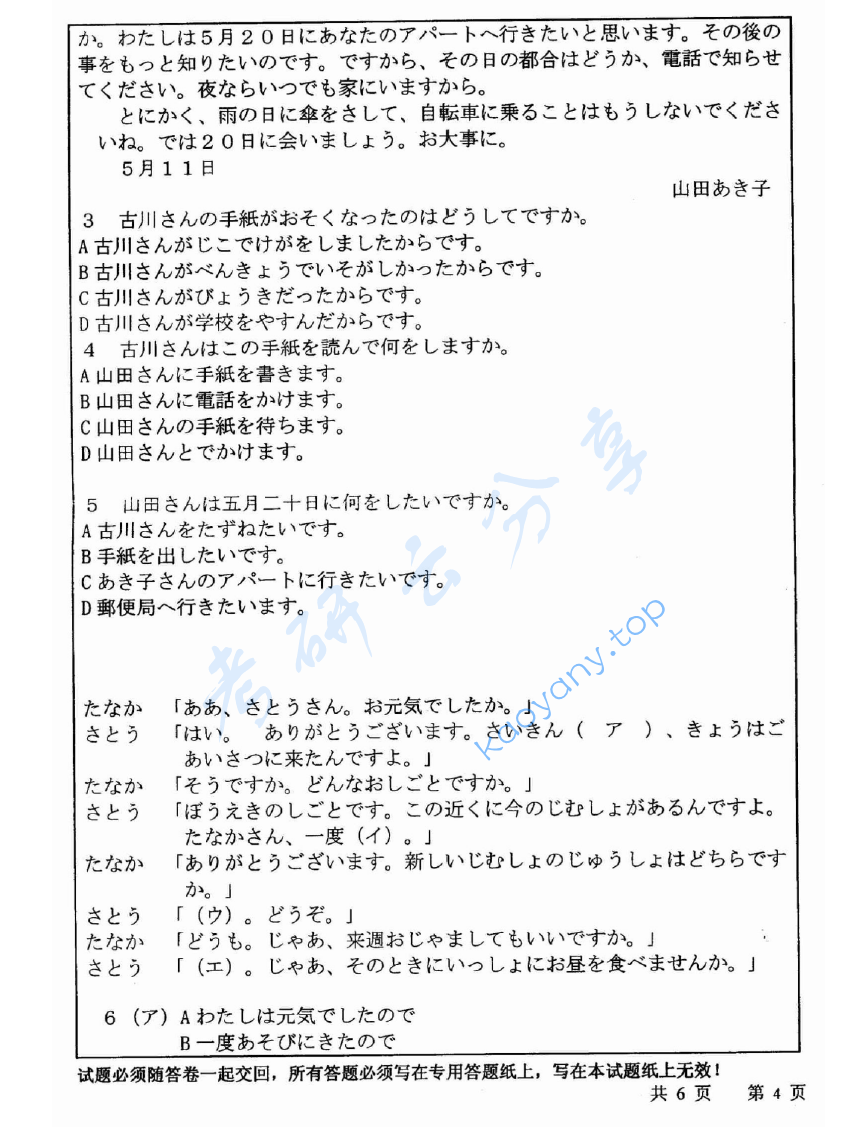 か。わたしは5月20日にあなたのアパートへ行きたいと思います。その後の
事をもっと知りたいのです。ですから、その日の都合はどうか、電話で知らせ
てください。夜ならいつでも家にいますから。
とにかく、雨の日に傘をさして、自転車に乗ることはもうしないでくださ
いね。では20日に会いましょう。お大事に。
5月11日
山田あき子
3 古川さんの手紙がおそくなったのはどうしてですか。
A古川さんがじこでけがをしましたからです。
B古川さんがべんきょうでいそがしかったからです。
C古川さんがびょうきだったからです。
D古川さんが学校をやすんだからです。
4 古川さんはこの手紙を読んで何をしますか。
A山田さんに手紙を書きます。
B山田さんに電話をかけます。
C山田さんの手紙を待ちます。
D山田さんとでかけます。
5 山田さんは五月二十日に何をしたいですか。
A古川さんをたずねたいです。
B手紙を出したいです。
Cあき子さんのアパートに行きたいです。
D郵便局へ行きたいます。
考研云分享
kaoyany.top
たなか 「ああ、さとうさん。お元気でしたか。」
さとう 「はい。 ありがとうございます。さいきん( ア )、きょうはご
あいさつに来たんですよ。」
たなか 「そうですか。どんなおしごとですか。」
さとう 「ぼうえきのしごとです。この近くに今のじむしょがあるんですよ。
たなかさん、一度(イ)。」
たなか 「ありがとうございます。新しいじむしょのじゅうしょはどちらです
か。」
さとう 「(ウ)。どうぞ。」
たなか 「どうも。じゃあ、来週おじゃましてもいいですか。」
さとう 「(エ)。じゃあ、そのときにいっしょにお昼を食べませんか。」
6(ア)Aわたしは元気でしたので
B一度あそびにきたので
试题必须随答卷一起交回,所有答题必须写在专用答题纸上,写在本试题纸上无效!
共 6 页 第 4 页